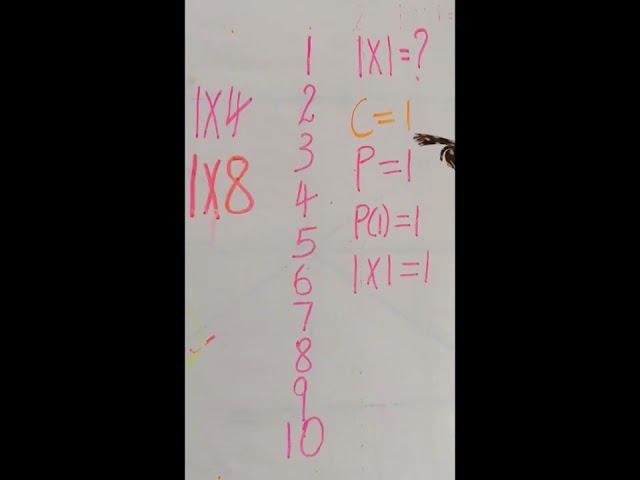 1X4
1X8
1
2
3
4
5
6
7
8
9
10
1X1=?
C=1
P=1
P(1)=1
1X1=1